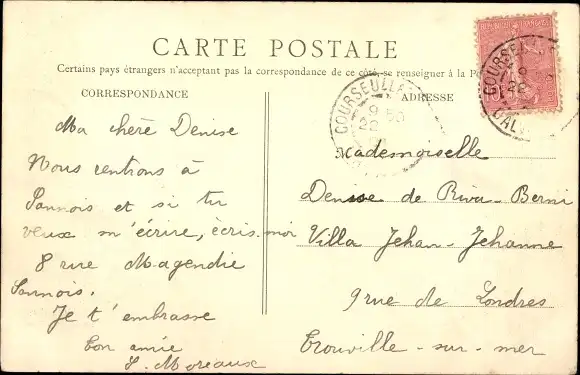 CARTE POSTALE
Certains pays étrangers n'acceptant pas la correspondance de ce côté, se renseigner à la
CORRESPONDANCE
Ma chère Denise
Nous rentrons à
Sannois et si tu
veux m'écrire, écris-moi
8 rue Magendie
Sannois.
Je t'embrasse
Ton amie
S. Moreaux
ADRESSE
Mademoiselle
Denise de Riva-Berni
Villa Jehan-Jehanne
9 rue de Londres
Trouville-sur-mer